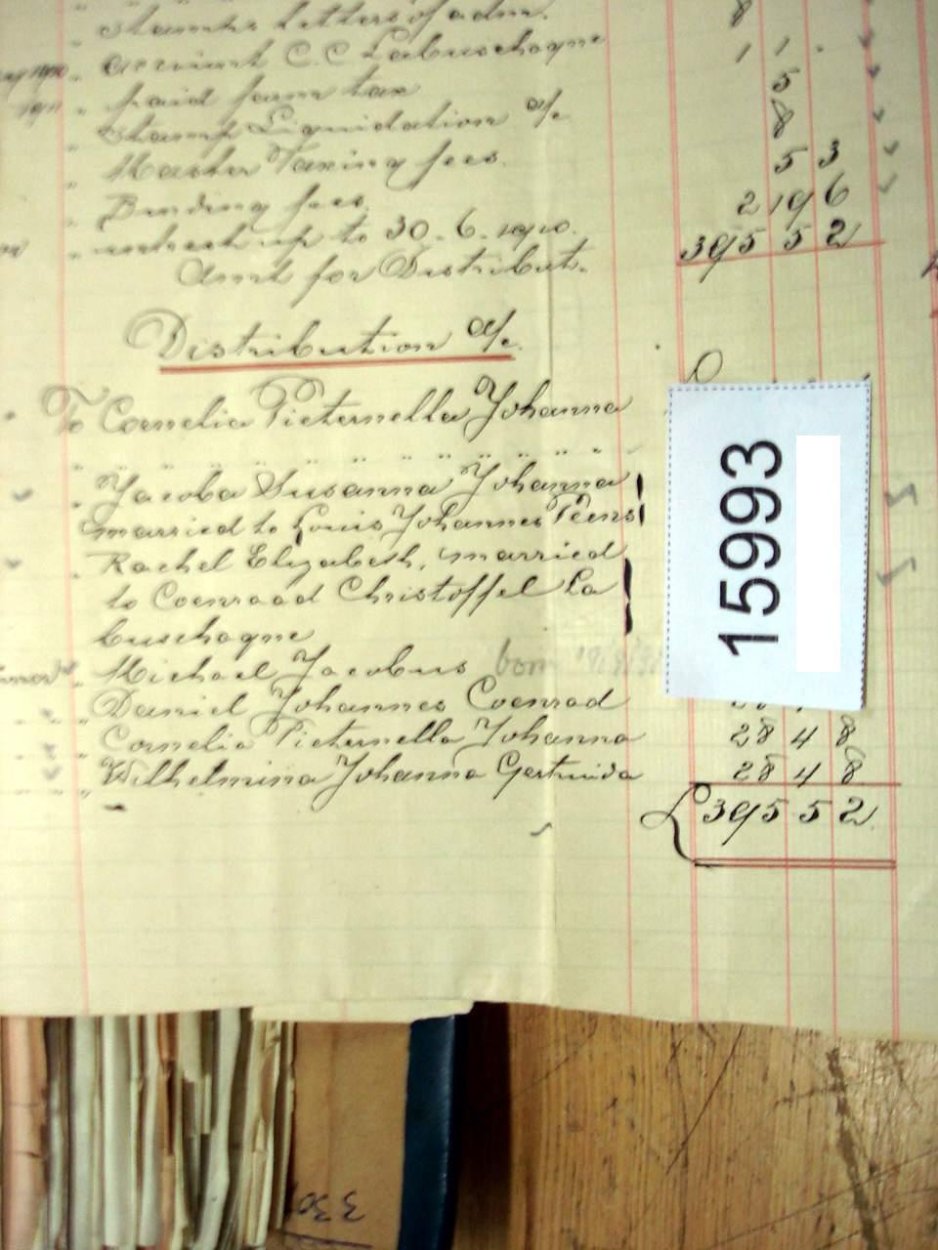 Stamps Letters of adm. 8
account C. C Labuschagne 1 1 .
paid farm tax 5
1911 " Stamp Liquidation a/c 8
" Master Taxing fees. 5 3
" Binding fees. 2 19 6
" up to 30. 6. 1910. 395 5 2
Amt for Distribut.
Distribution a/c.
£
To Cornelia Pieternella Johanna
" " " " " " " " "
" Jacoba Susanna Johanna
married to Louis Johannes Peens
" Rachel Elizabeth, married
to Coenraad Christoffel La
buschagne
" Michael Jacobus born
" Daniel Johannes Coenrad
" Cornelia Pieternella Johanna 28 4 8
" Wilhelmina Johanna Gertruida 28 4 8
£ 395 5 2
15993